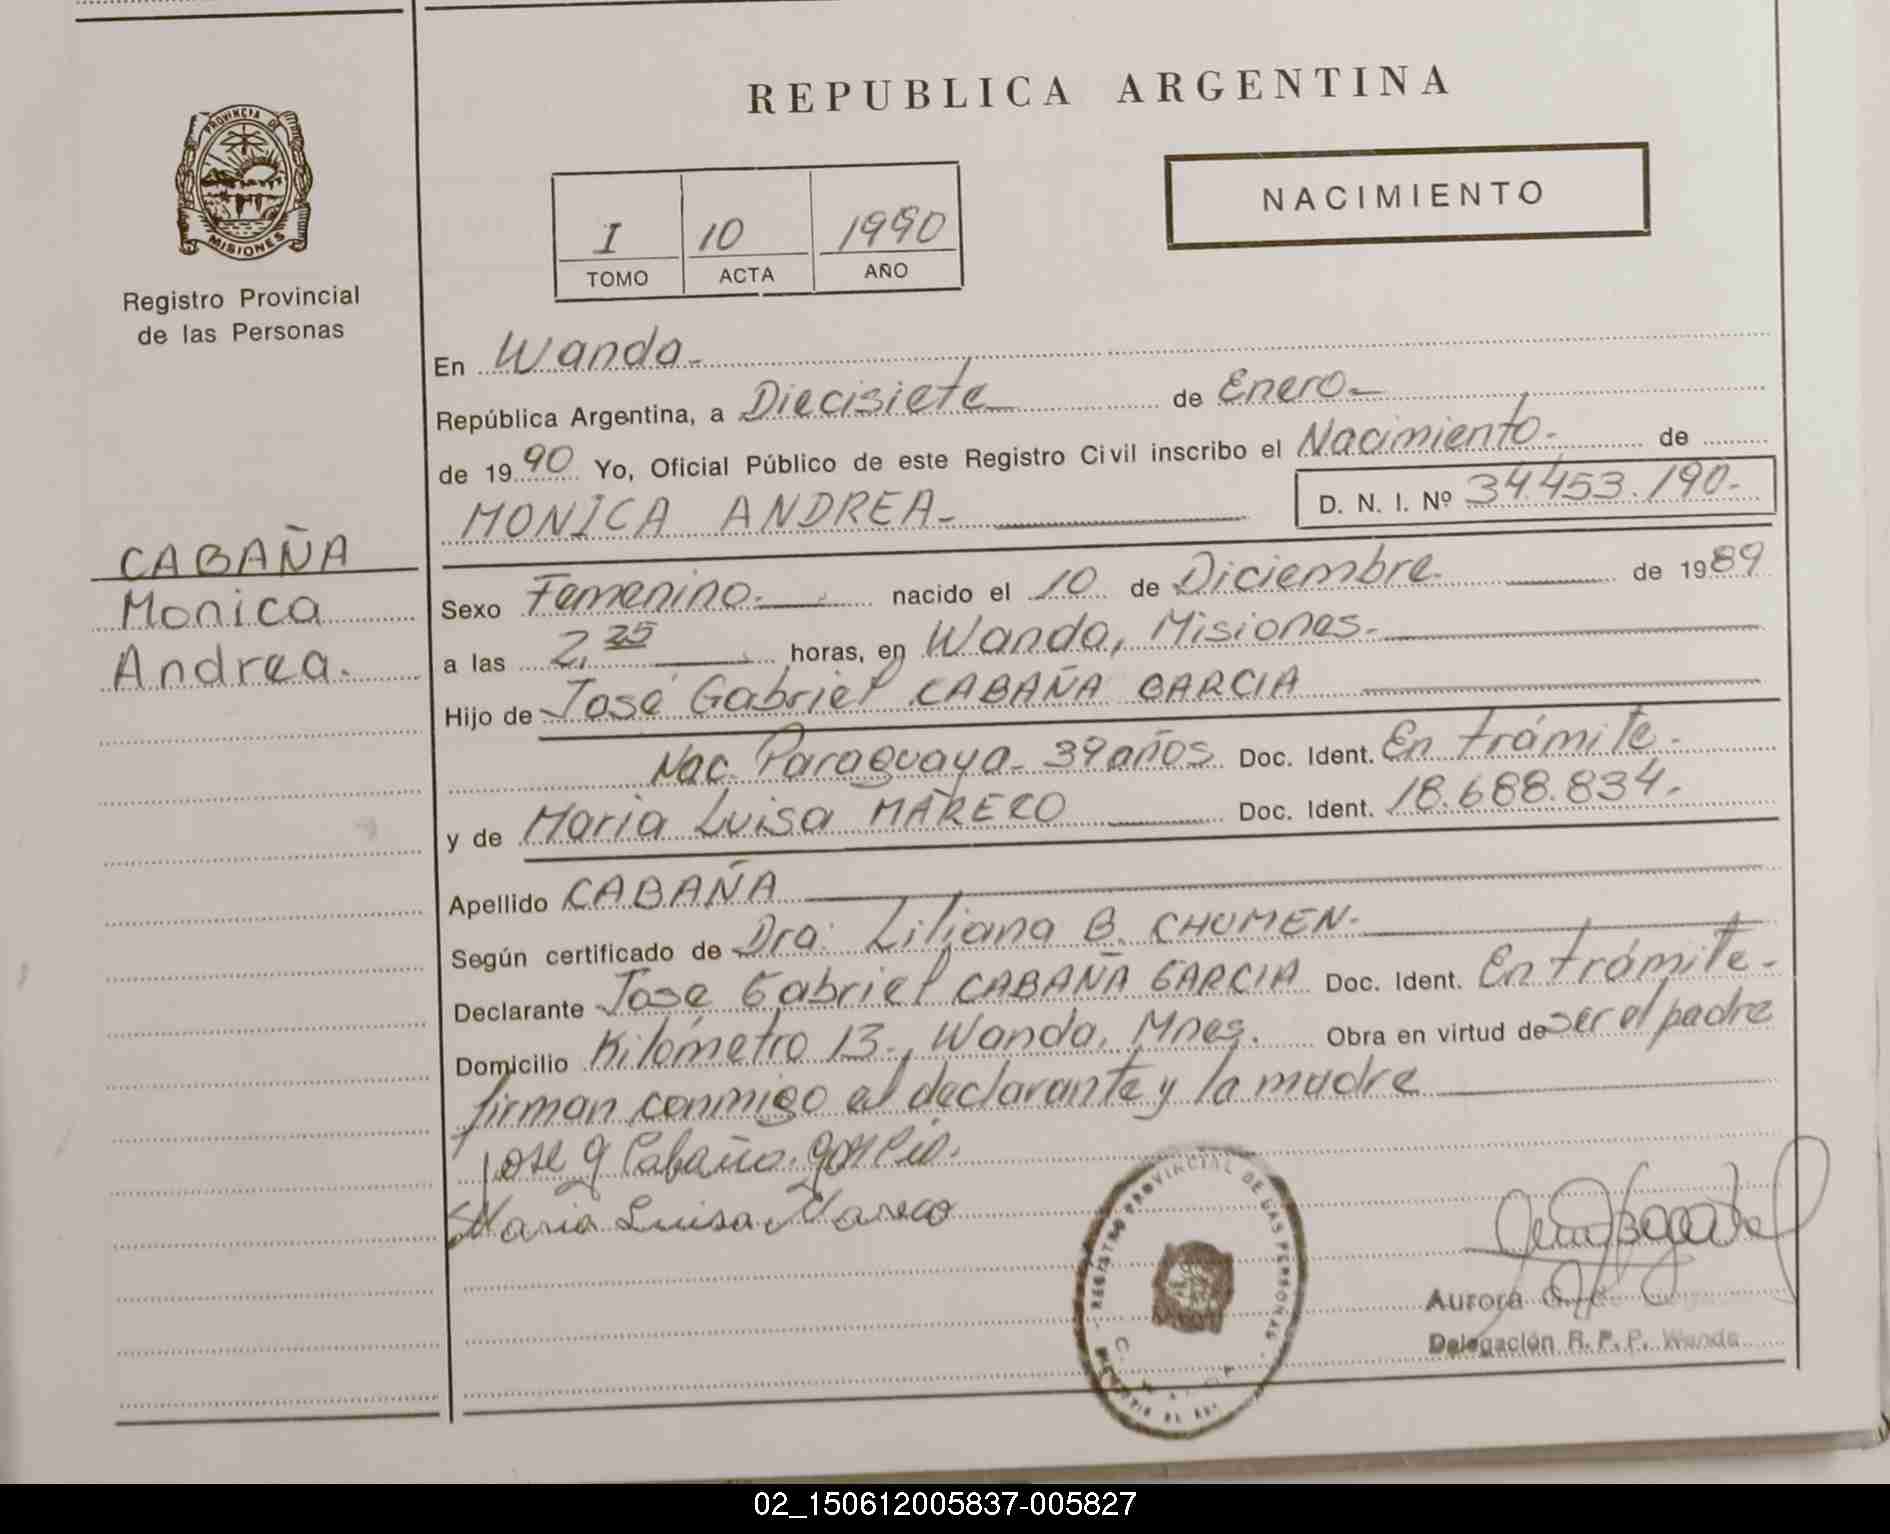 REPUBLICA ARGENTINA
PROVINCIA DE
MISIONES
Registro Provincial
de las Personas
I 10 1990
TOMO ACTA AÑO
NACIMIENTO
En Wanda-
República Argentina, a Diecisiete de Enero-
de 1990 Yo, Oficial Público de este Registro Civil inscribo el Nacimiento- de
MONICA ANDREA- D. N. I. Nº 34.453.190-
CABAÑA
Monica
Andrea.
Sexo Femenino. nacido el 10 de Diciembre. de 1989
a las 2,35 horas, en Wanda, Misiones-
Hijo de José Gabriel CABAÑA GARCIA
Nac. Paraguaya- 39 años Doc. Ident. En trámite-
y de Maria Luisa MARECO Doc. Ident. 18.688.834.
Apellido CABAÑA
Según certificado de Dra. Liliana B. CHUMEN-
Declarante José Gabriel CABAÑA GARCIA Doc. Ident. En trámite-
Domicilio Kilómetro 13., Wanda, Mnes. Obra en virtud de ser el padre
firman conmigo el declarante y la madre
Jose g Cabaña. garcia.
Maria Luisa Mareco
REGISTRO PROVINCIAL DE LAS PERSONAS
Aurora
Delegación R. P. P. Wanda
02_150612005837-005827